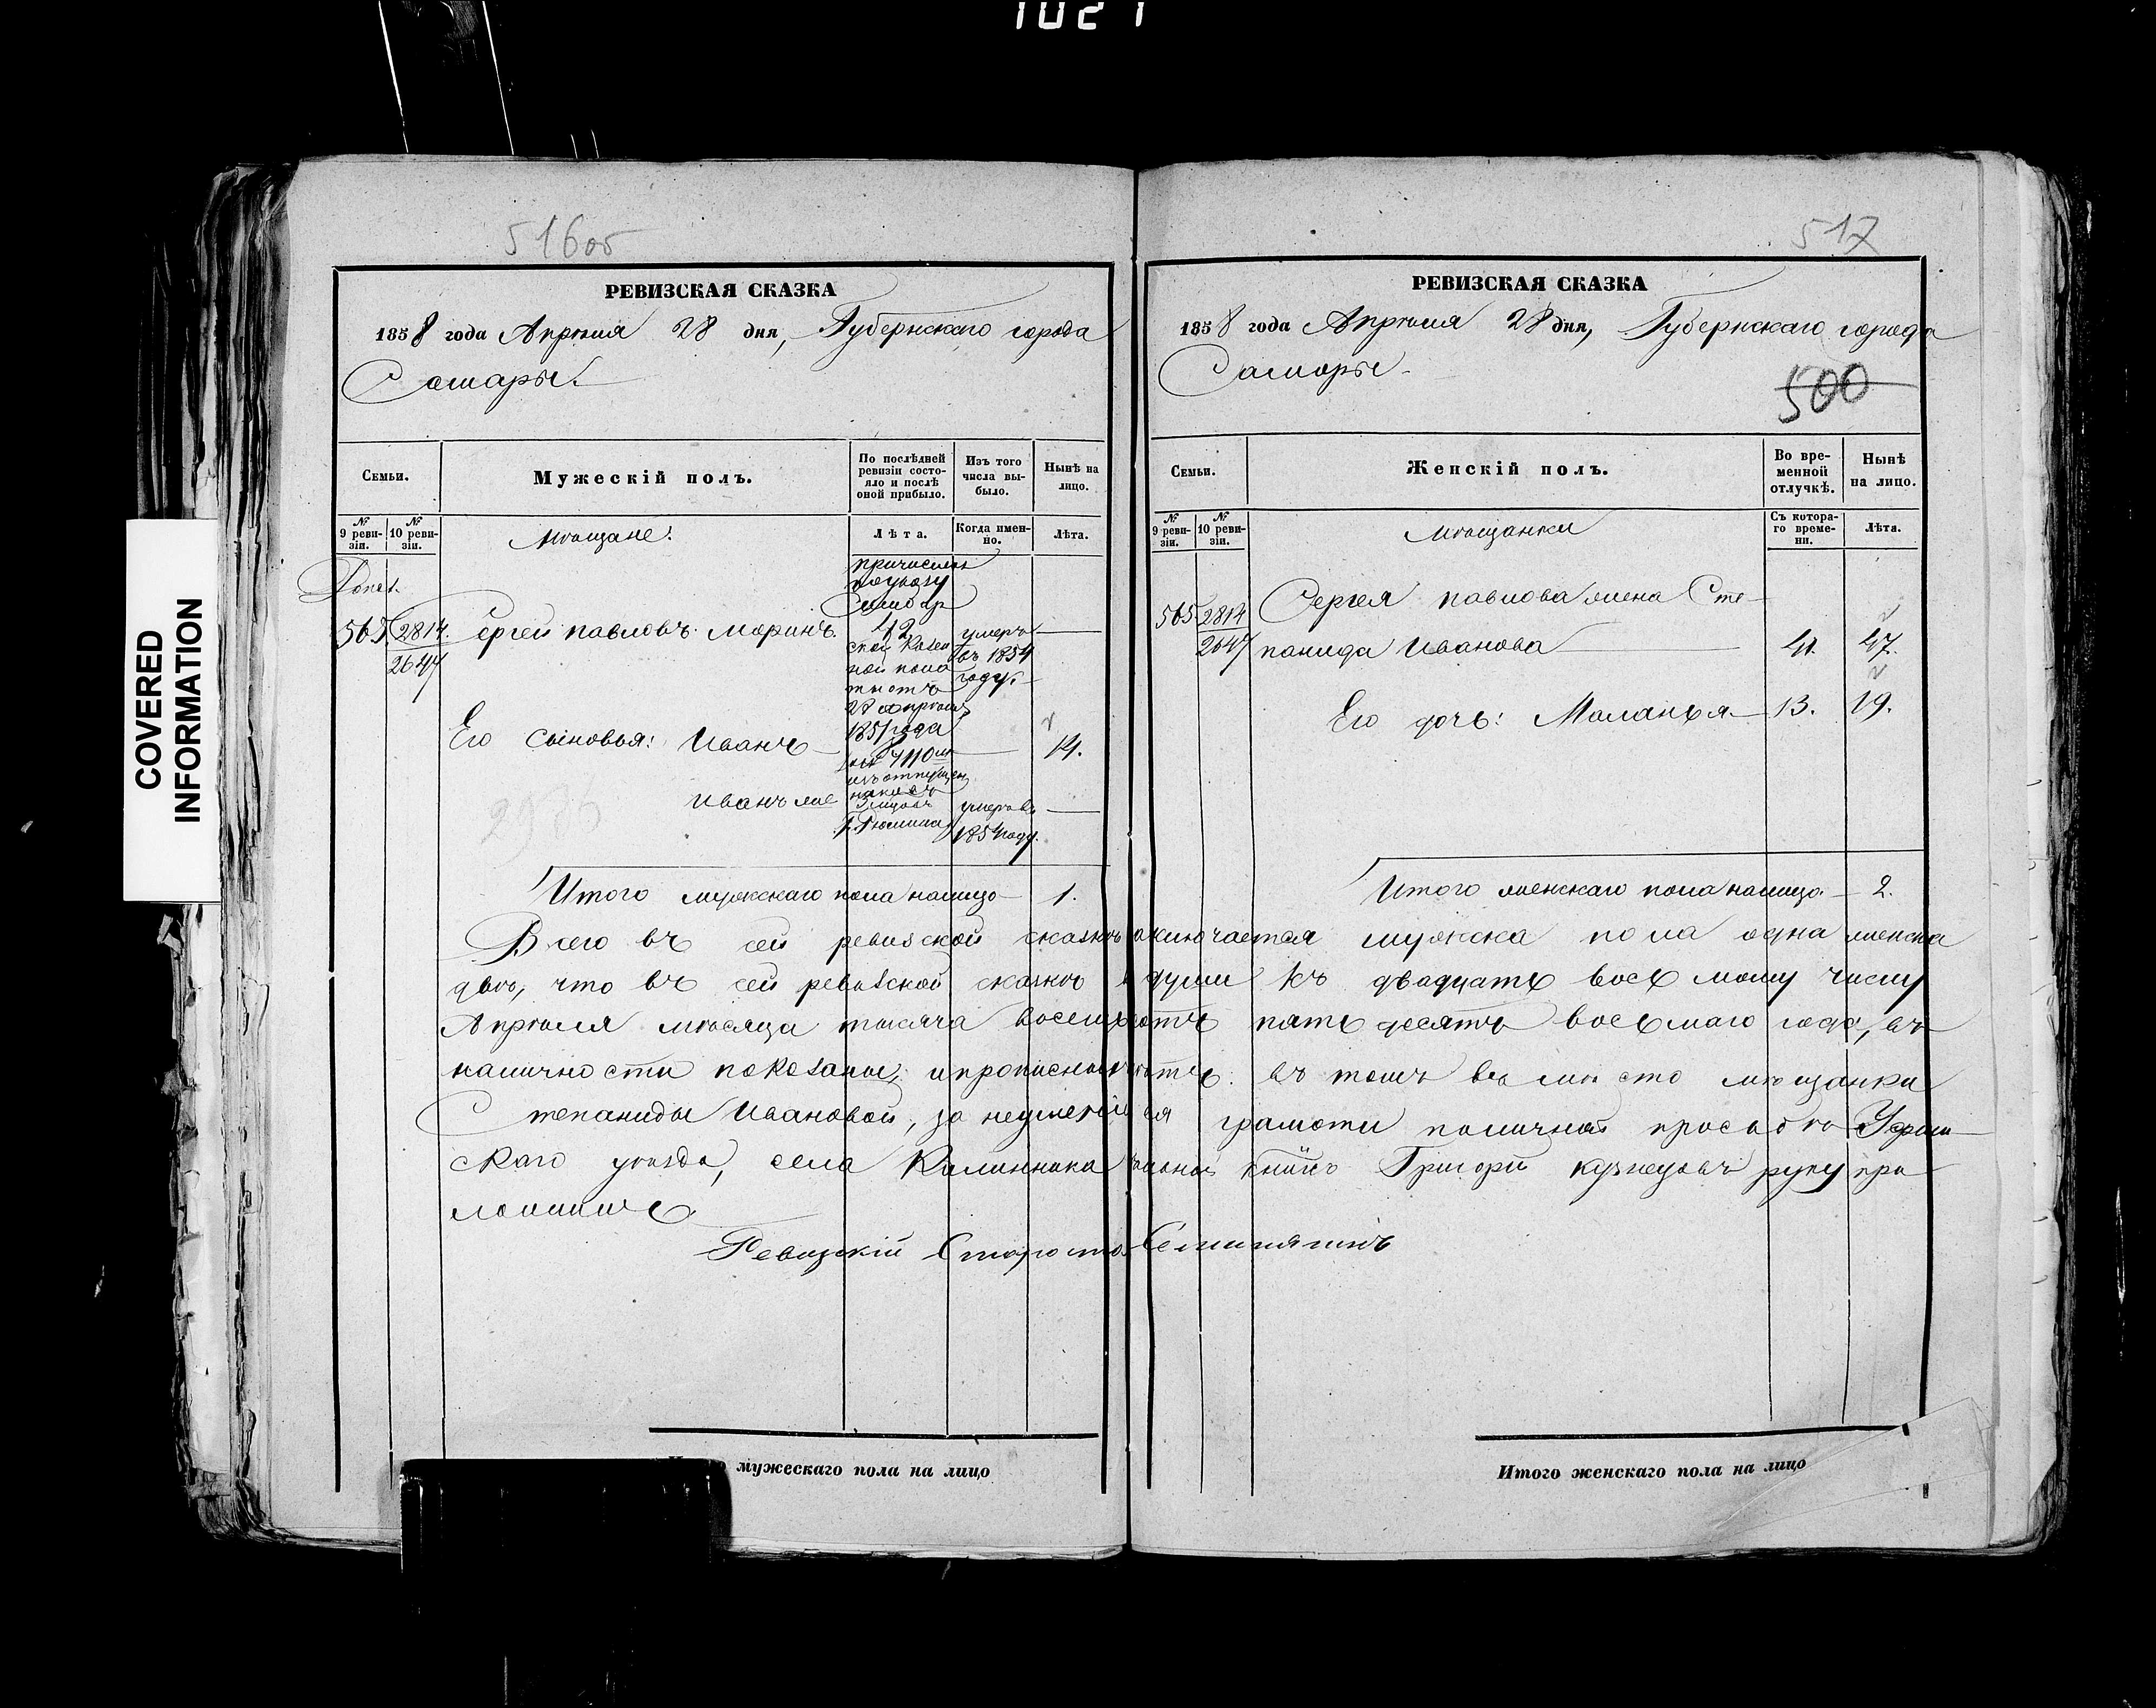 1021
COVERED
INFORMATION
516об
РЕВИЗСКАЯ СКАЗКА
1858 года Апрѣля 28 дня, Губернскаго города
Самары.
Семьи.
Мужескій полъ.
По послѣдней ревизіи состояло и послѣ оной прибыло.
Изъ того числа выбыло.
Нынѣ на лицо.
№ 9 ревизіи.
№ 10 ревизіи.
Мѣщане:
Лѣта.
Когда именно.
Лѣта.
565. 2814. Сергей павловъ Маринъ. 42 умеръ
2647 въ 1854
году.
причисленъ
по указу
Самар
ской Казен
ной пала
ты отъ
28 апрѣля
1851 года
за № 4110м
изъ отпущен
Его сыновья: Иванъ 14.
Иванъ же умеръ въ
1854 году.
Итого мужскаго пола налицо 1.
517
РЕВИЗСКАЯ СКАЗКА
1858 года Апрѣля 28 дня, Губернскаго города
Самары.
500
Семьи.
Женскій полъ.
Во временной отлучкѣ.
Нынѣ на лицо.
№ 9 ревизіи.
№ 10 ревизіи.
мѣщанки
Съ котораго времени.
Лѣта.
565 2814 Сергея павлова жена Сте-
2647 панида Иванова 41. 47.
Его дочь: Маланья 13. 19.
Итого женскаго пола налицо 2.
Всего въ сей ревизской сказкѣ заключается мужска пола одна женска
двѣ, что въ сей ревизской сказкѣ души къ двадцать восьмому числу
Апрѣля мѣсяца тысяча восемьсотъ пятьдесятъ восьмаго года, въ
наличности показаны, и прописныхъ нѣтъ. въ томъ въ мѣсто мѣщанки
Степаниды Ивановой, за неуменіемъ грамоти поличной просьбѣ Уфим
скаго уѣзда, села Калинника Григорій кузнецовъ руку при
ложилъ
Ревизскій Староста
мужескаго пола на лицо
Итого женскаго пола на лицо